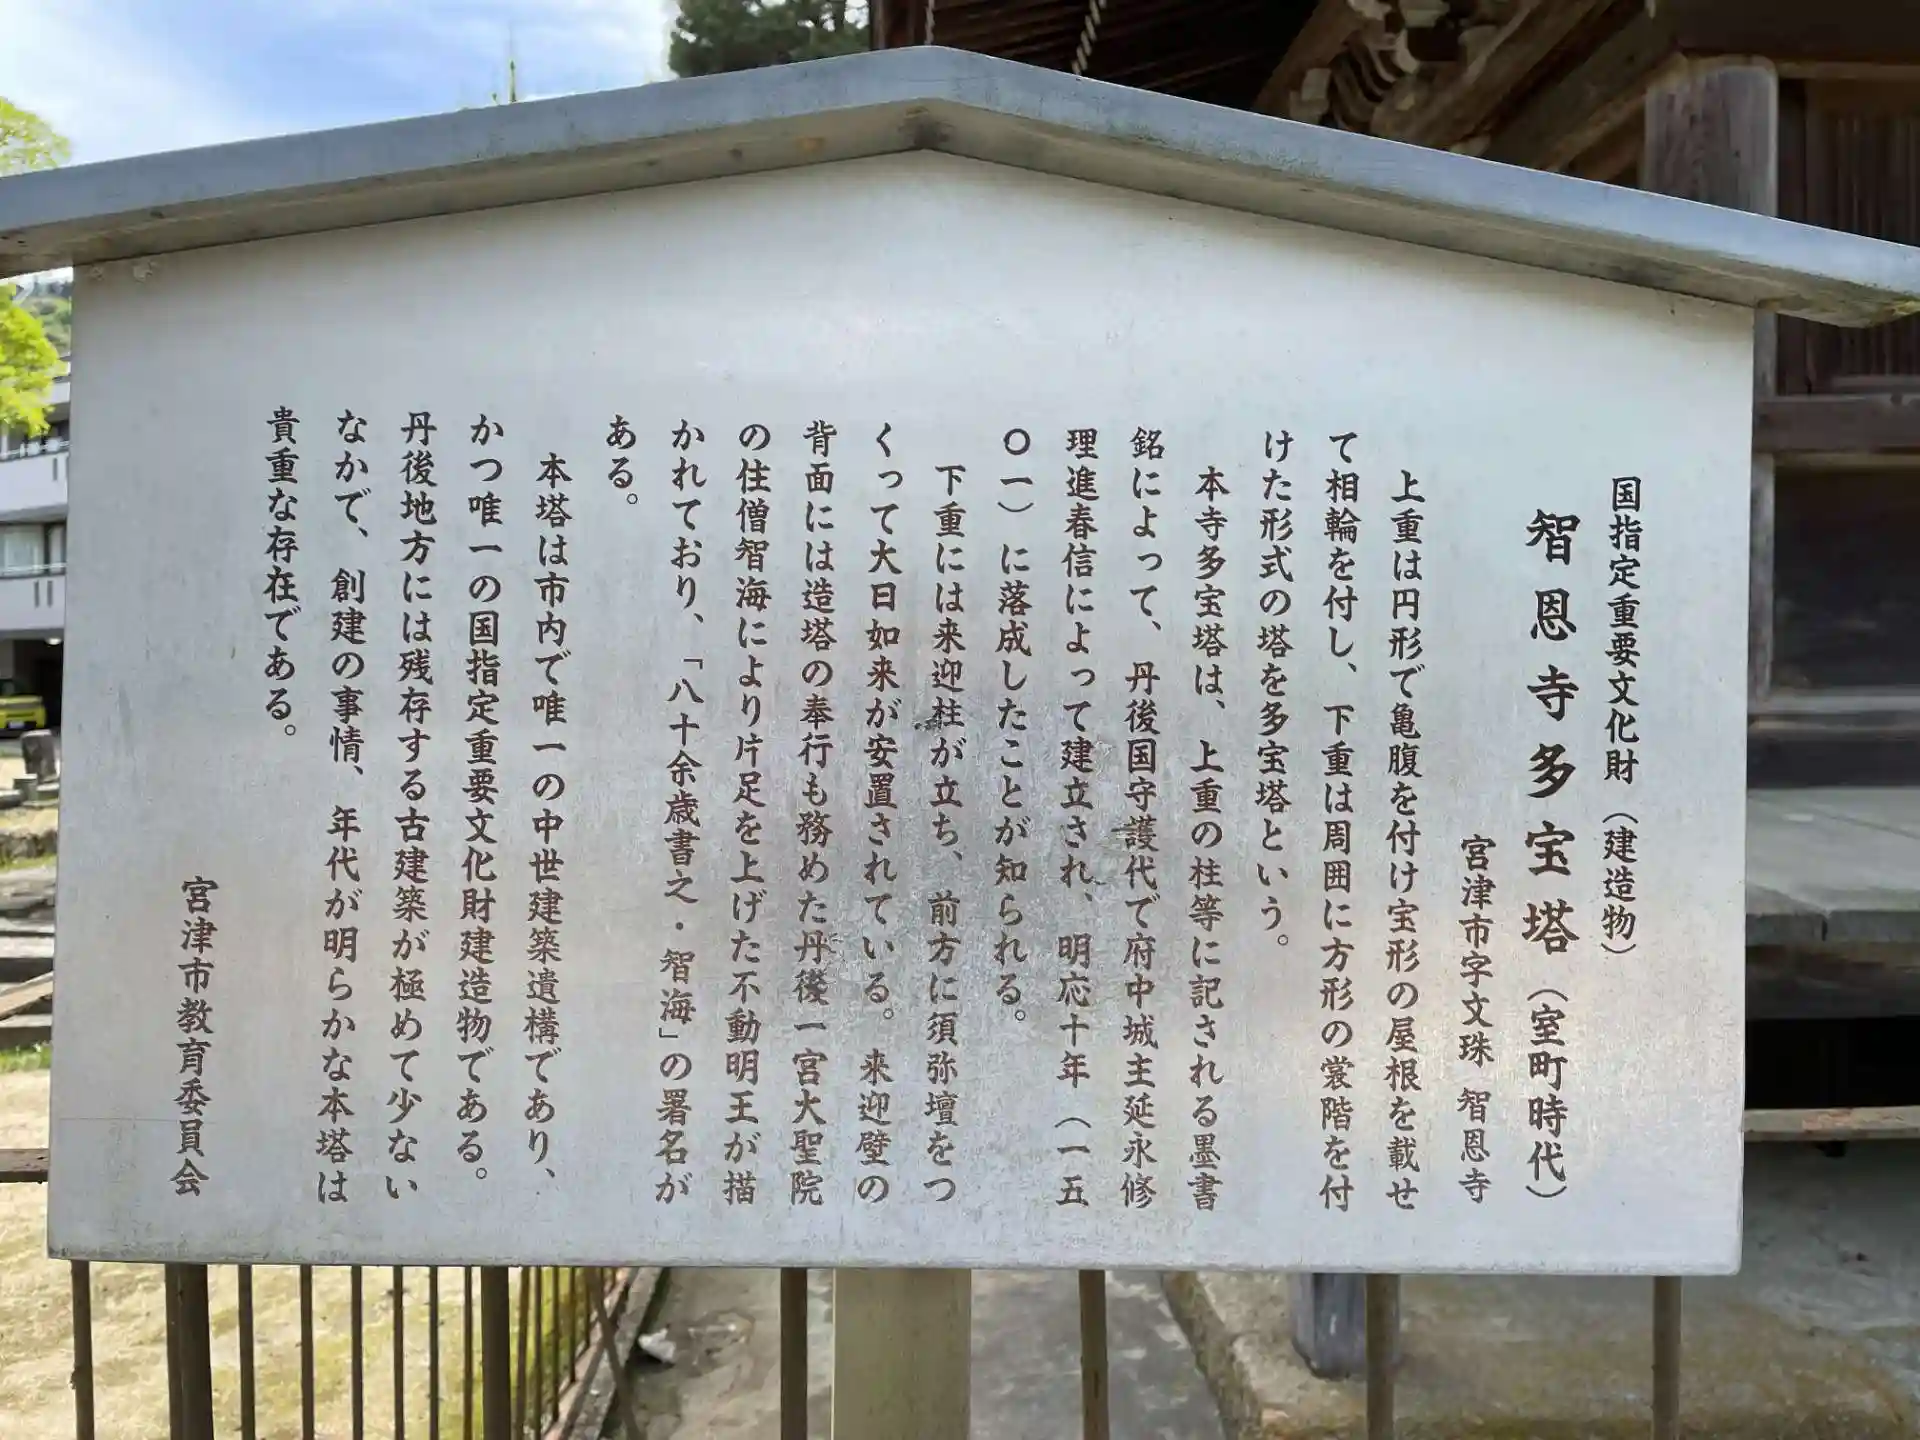 国指定重要文化財（建造物）
智恩寺多宝塔（室町時代）
宮津市字文珠 智恩寺
上重は円形で亀腹を付け宝形の屋根を載せ
て相輪を付し、下重は周囲に方形の裳階を付
けた形式の塔を多宝塔という。
本寺多宝塔は、上重の柱等に記される墨書
銘によって、丹後国守護代で府中城主延永修
理進春信によって建立され、明応十年（一五
〇一）に落成したことが知られる。
下重には来迎柱が立ち、前方に須弥壇をつ
くって大日如来が安置されている。来迎壁の
背面には造塔の奉行も務めた丹後一宮大聖院
の住僧智海により片足を上げた不動明王が描
かれており、「八十余歳書之・智海」の署名が
ある。
本塔は市内で唯一の中世建築遺構であり、
かつ唯一の国指定重要文化財建造物である。
丹後地方には残存する古建築が極めて少ない
なかで、創建の事情、年代が明らかな本塔は
貴重な存在である。
宮津市教育委員会